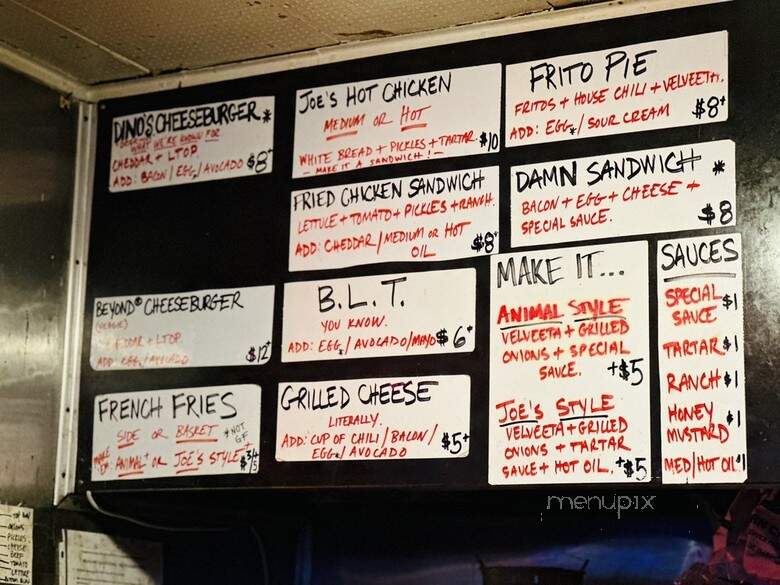 DINO'S CHEESEBURGER *
WHAT WE'RE KNOWN FOR
CHEDDAR + LTOP
ADD: BACON / EGG* / AVOCADO $8+
JOE'S HOT CHICKEN
MEDIUM OR HOT
WHITE BREAD + PICKLES + TARTAR $10
- MAKE IT A SANDWICH! -
FRITO PIE
FRITOS + HOUSE CHILI + VELVEETA.
ADD: EGG* / SOUR CREAM $8+
FRIED CHICKEN SANDWICH
LETTUCE + TOMATO + PICKLES + RANCH.
ADD: CHEDDAR / MEDIUM OR HOT
OIL $8+
DAMN SANDWICH *
BACON + EGG + CHEESE +
SPECIAL SAUCE. $8
BEYOND® CHEESEBURGER
(VEGGIE)
CHEDDAR + LTOP
ADD: EGG* / AVOCADO $12+
B.L.T.
YOU KNOW.
ADD: EGG* / AVOCADO / MAYO $6+
FRENCH FRIES
SIDE OR BASKET *NOT
GF
MAKE EM ANIMAL+ OR JOE'S STYLE+ $3/5
GRILLED CHEESE
LITERALLY.
ADD: CUP OF CHILI / BACON /
EGG* / AVOCADO $5+
MAKE IT...
ANIMAL STYLE
VELVEETA + GRILLED
ONIONS + SPECIAL
SAUCE. +$5
JOE'S STYLE
VELVEETA + GRILLED
ONIONS + TARTAR
SAUCE + HOT OIL. +$5
SAUCES
SPECIAL
SAUCE $1
TARTAR $1
RANCH $1
HONEY
MUSTARD $1
MED/HOT OIL $1
ONIONS
PICKLES
CHEESE
BEEF
TOMATO
LETTUCE
BOTTOM BUN
menupix